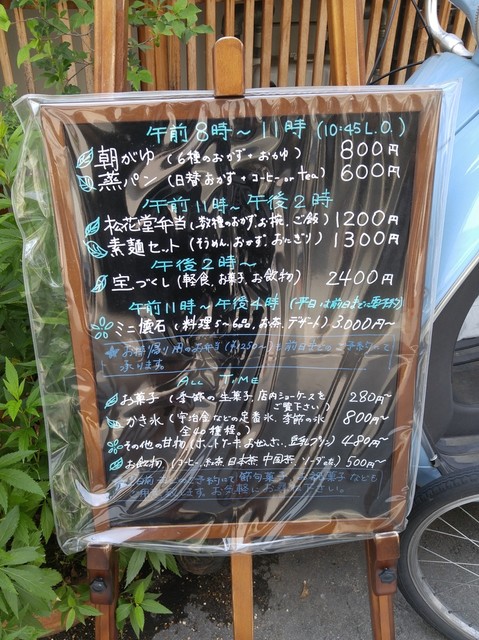 午前8時～11時 (10:45 L.O.)
朝がゆ (6種のおかず+おかゆ) 800円
蒸パン (日替おかず+コーヒー or tea) 600円
午前11時～午後2時
松花堂弁当 (数種のおかず、お椀、ご飯) 1200円
素麺セット (そうめん、おかず、おにぎり) 1300円
午後2時～
宝づくし (軽食、お菓子、お飲物) 2400円
午前11時～午後4時 (平日は前日までに要予約)
ミニ懐石 (料理5～6品、お茶、デザート) 3,000円～
★お持帰り用のお弁当 (¥1250～) も前日までのご予約にて
承ります。
ALL TIME
お菓子 (季節の生菓子 店内ショーケースを 280円～
ご覧下さい)
かき氷 (宇治金などの定番氷、季節の氷 800円～
全40種程。)
その他の甘物 (ホットケーキ、おぜんざい、豆乳プリン) 480円～
お飲物 (コーヒー、紅茶、日本茶、中国茶、ソーダ etc) 500円～
にて節句菓子、お
お気軽に 下さい。